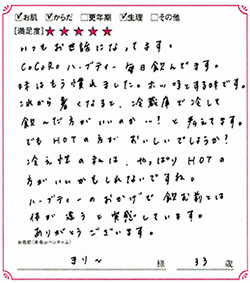 ☑お肌 ☑からだ □更年期 ☑生理 □その他
[満足度]★★★★★
いつもお世話になってます。
CoCoRoハーブティー毎日飲んでます。
味はもう慣れました。ホッとする味です。
これから暑くなると、冷蔵庫で冷して
飲んだ方がいいのかい？と考えてます。
でもHOTの方がおいしいでしょうか？
冷え性の私は、やっぱりHOTの
方がいいかもしれないですね。
ハーブティーのおかげで飲む前とは
体が違うと実感しています。
ありがとうございます。
お名前(本名orペンネーム)
まりー 様 33 歳